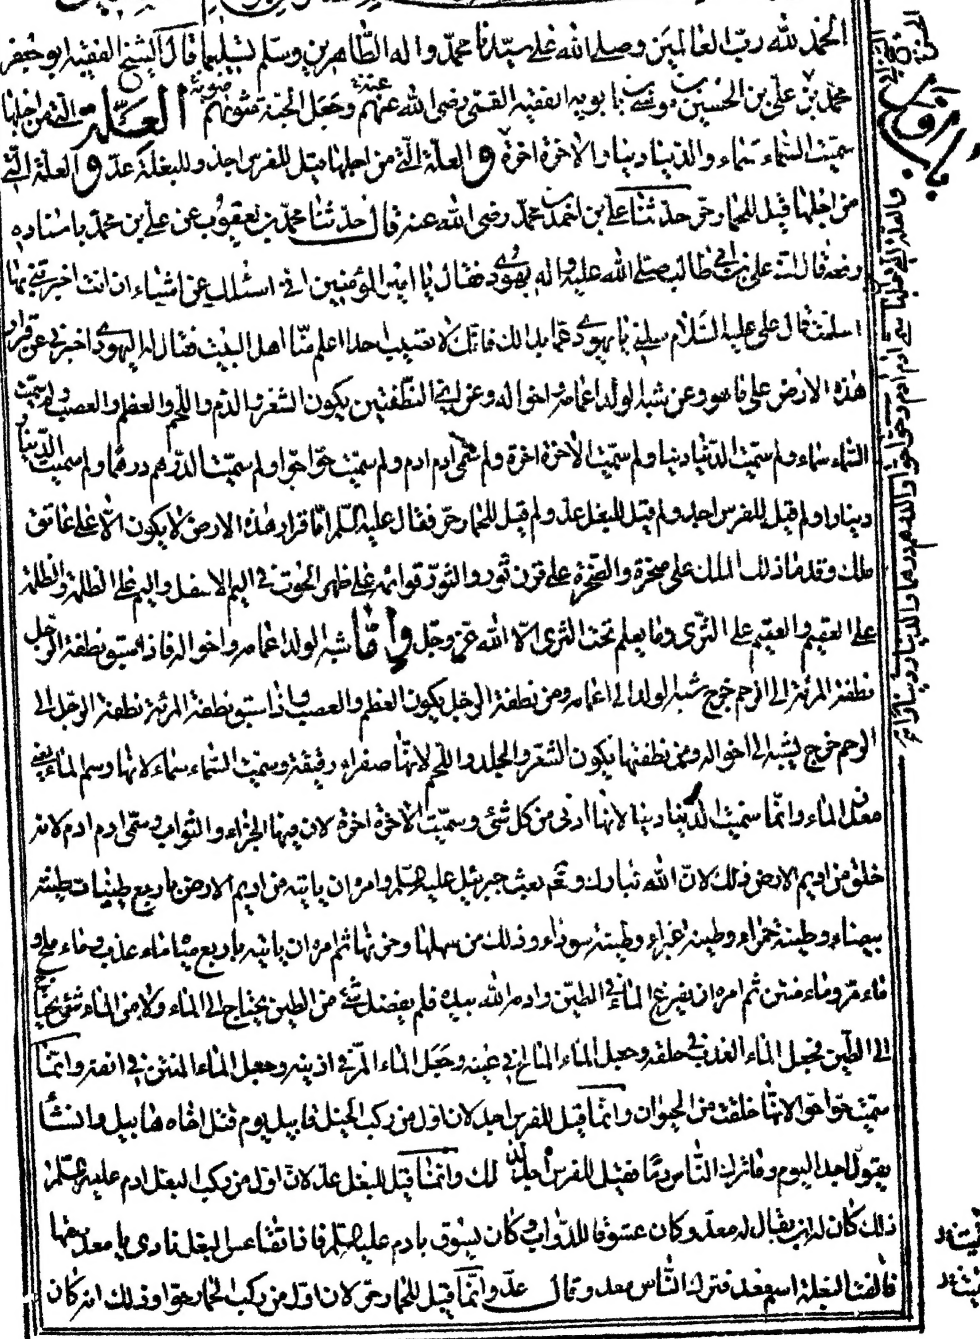 الحمد لله رب العالمين وصلى الله على سيدنا محمد واله الطاهرين وسلم تسليما قال الشيخ الفقيه ابو جعفر
محمد بن علي بن الحسين بن موسى بن بابويه الفقيه القمي رضى الله عنهم وجعل الجنة مثويهم العلة التي من اجلها
سميت السماء سماء والدنيا دنيا والاخرة اخرة والعلة التي من اجلها قيل للفرس اجد وللبغلة عد والعلة التي
من اجلها قيل للحمار حر حدثنا علي بن احمد بن محمد رضى الله عنه قال حدثنا محمد بن يعقوب عن علي بن محمد باسناده
رفعه قال اتى علي بن ابي طالب صلى الله عليه واله يهودي فقال يا امير المؤمنين اني اسئلك عن اشياء ان انت اخبرتني بها
اسلمت قال علي عليه السلام سلني يا يهودي عما بدا لك فانك لا تصيب احدا اعلم منا اهل البيت فقال له اليهودي اخبرني عن قرار
هذه الارض على ما هو وعن شبه الولد اعمامه واخواله وعن اي النطفتين يكون الشعر والدم واللحم والعظم والعصب ولم سميت
السماء سماء ولم سميت الدنيا دنيا ولم سميت الاخرة اخرة ولم سمى ادم ادم ولم سميت حوا حوا ولم سميت الدرهم درهما ولم سميت الدينار
دينارا ولم قيل للفرس اجد ولم قيل للبغل عد ولم قيل للحمار حر فقال عليه السلم اما قرار هذه الارض لا يكون الا على عاتق
ملك وقدما ذلك الملك على صخرة والصخرة على قرن ثور والثور قوائمه على ظهر الحوت في اليم الاسفل واليم على الظلمة والظلمة
على العقيم والعقيم على الثرى وما يعلم تحت الثرى الا الله عز وجل واما شبه الولد اعمامه واخواله فاذا سبق نطفة الرجل
نطفة المرئة الى الرحم خرج شبه الولد الى اعمامه ومن نطفة الرجل يكون العظم والعصب واذا سبق نطفة المرئة نطفة الرجل الى
الرحم خرج شبه الى اخواله ومن نطفتها يكون الشعر والجلد واللحم لانها صفراء رقيقة وسميت السماء سماء لانها وسم الماء يعني
معدن الماء وانما سميت الدنيا دنيا لانها ادنى من كل شئ وسميت الاخرة اخرة لان فيها الجزاء والثواب وسمى ادم ادم لانه
خلق من اديم الارض وذلك لان الله تبارك وتعم بعث جبرئيل عليه السلم وامره ان ياتيه من اديم الارض باربع طينات طينة
بيضاء وطينة حمراء وطينة غبراء وطينة سوداء وذلك من سهلها وحزنها ثم امره ان ياتيه باربع مياه ماء عذب وماء ملح و
ماء مر وماء منتن ثم امره ان يفرغ الماء في الطين وادمه الله بيده فلم يفضل شئ من الطين يحتاج الى الماء ولا من الماء شئ يحتاج
الى الطين فجعل الماء العذب في حلقه وجعل الماء المالح في عينيه وجعل الماء المر في اذنيه وجعل الماء المنتن في انفه وانما
سميت حوا حوا لانها خلقت من الحيوان وانما قيل للفرس اجد لان اول من ركب الخيل قابيل يوم قتل اخاه هابيل وانشأ
يقول اجد اليوم وما ترك الناس دما فقيل للفرس اجد لذلك وانما قيل للبغل عد لان اول من ركب البغل ادم عليه السلم و
ذلك كان له ابن يقال له معد وكان عشوقا للدواب وكان يسوق بادم عليه السلم فاذا تقاعس البغل نادى يا معد سقها
فالفت البغلة اسم معد فترك الناس معد وقال عد وانما قيل للحمار حر لان اول من ركب الحمار حوا وذلك انه كان